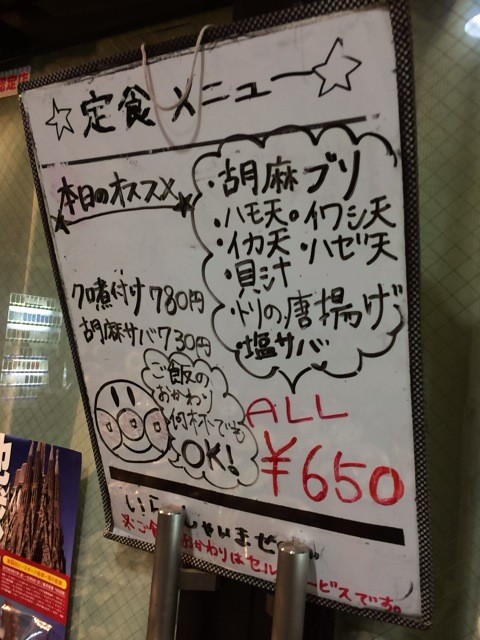 ☆定食メニュー☆
本日のオススメ
・胡麻ブリ
・ハモ天・イワシ天
・イカ天・ハゼ天
・貝汁
・トリの唐揚げ
・塩サバ
クロ煮付け780円
胡麻サバ730円
ご飯の
おかわり
何杯でも
OK!
ALL
¥650
いらっしゃいませ
※ご おかわりはセルフサービスです。